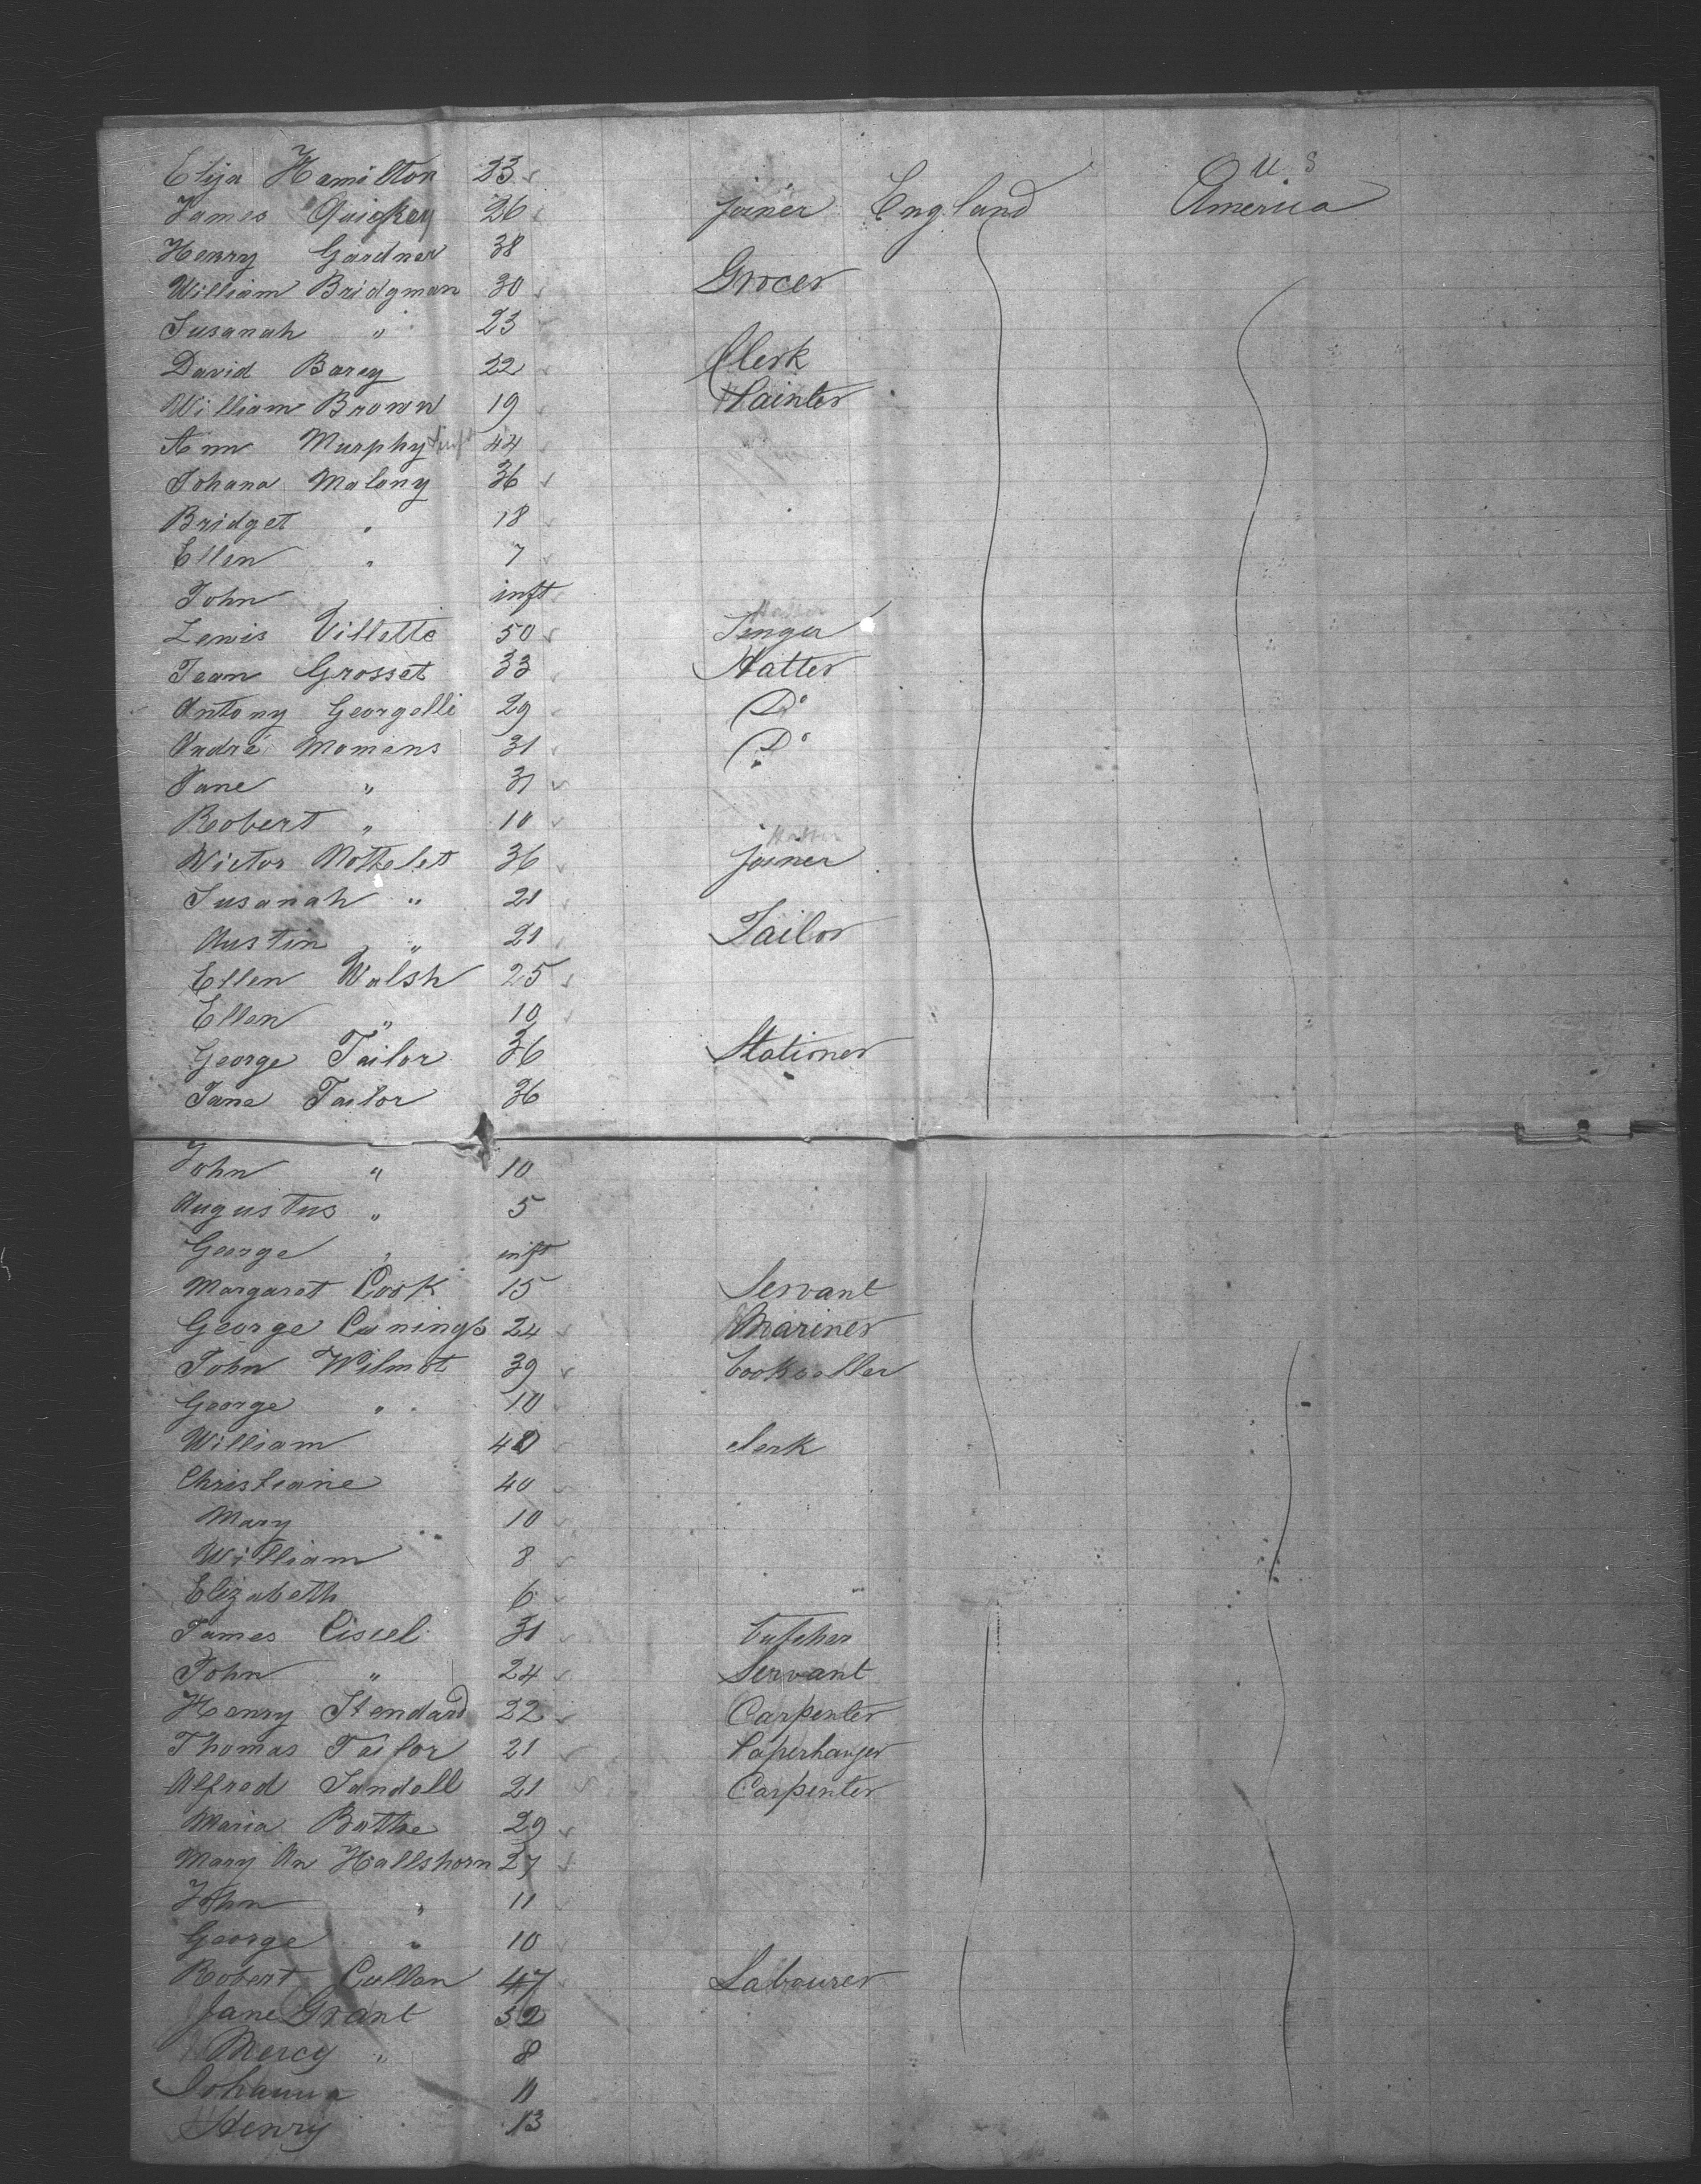 Eliza Hamilton 23 U.S
James Quickey 26 joiner England America
Henry Gardner 38
William Bridgman 30 Grocer
Susanah " 23
David Barey 22 Clerk
William Brown 19 Painter
Ann Murphy 44
Johana Malony 36
Bridget " 18
Ellen " 7
John " inft
Lewis Villette 50 Singer
Jean Grosset 33 Hatter
Antony Georgelli 29 Do
André Momens 31 Do
Jane " 31
Robert " 10
Victor Nottelet 36 joiner
Susanah " 21
Austin " 21 Tailor
Ellen Walsh 25
Ellen " 10
George Tailor 36 Stationer
Jane Tailor 36
John " 10
Augustus " 5
George " inft
Margaret Cook 15 Servant
George Cunings 24 Mariner
John Wilmot 39 bookseller
George " 10
William 40 clerk
Christiane 40
Mary 10
William 8
Elizabeth 6
James Cissel 31 butcher
John " 24 Servant
Henry Standard 22 Carpenter
Thomas Tailor 21 Paperhanger
Alfred Sandell 21 Carpenter
Maria Battae 29
Mary An Hallshorn 27
John " 11
George " 10
Robert Cullen 47 Labourer
Jane Grant 52
Mercy " 8
Johanna 11
Henry 13